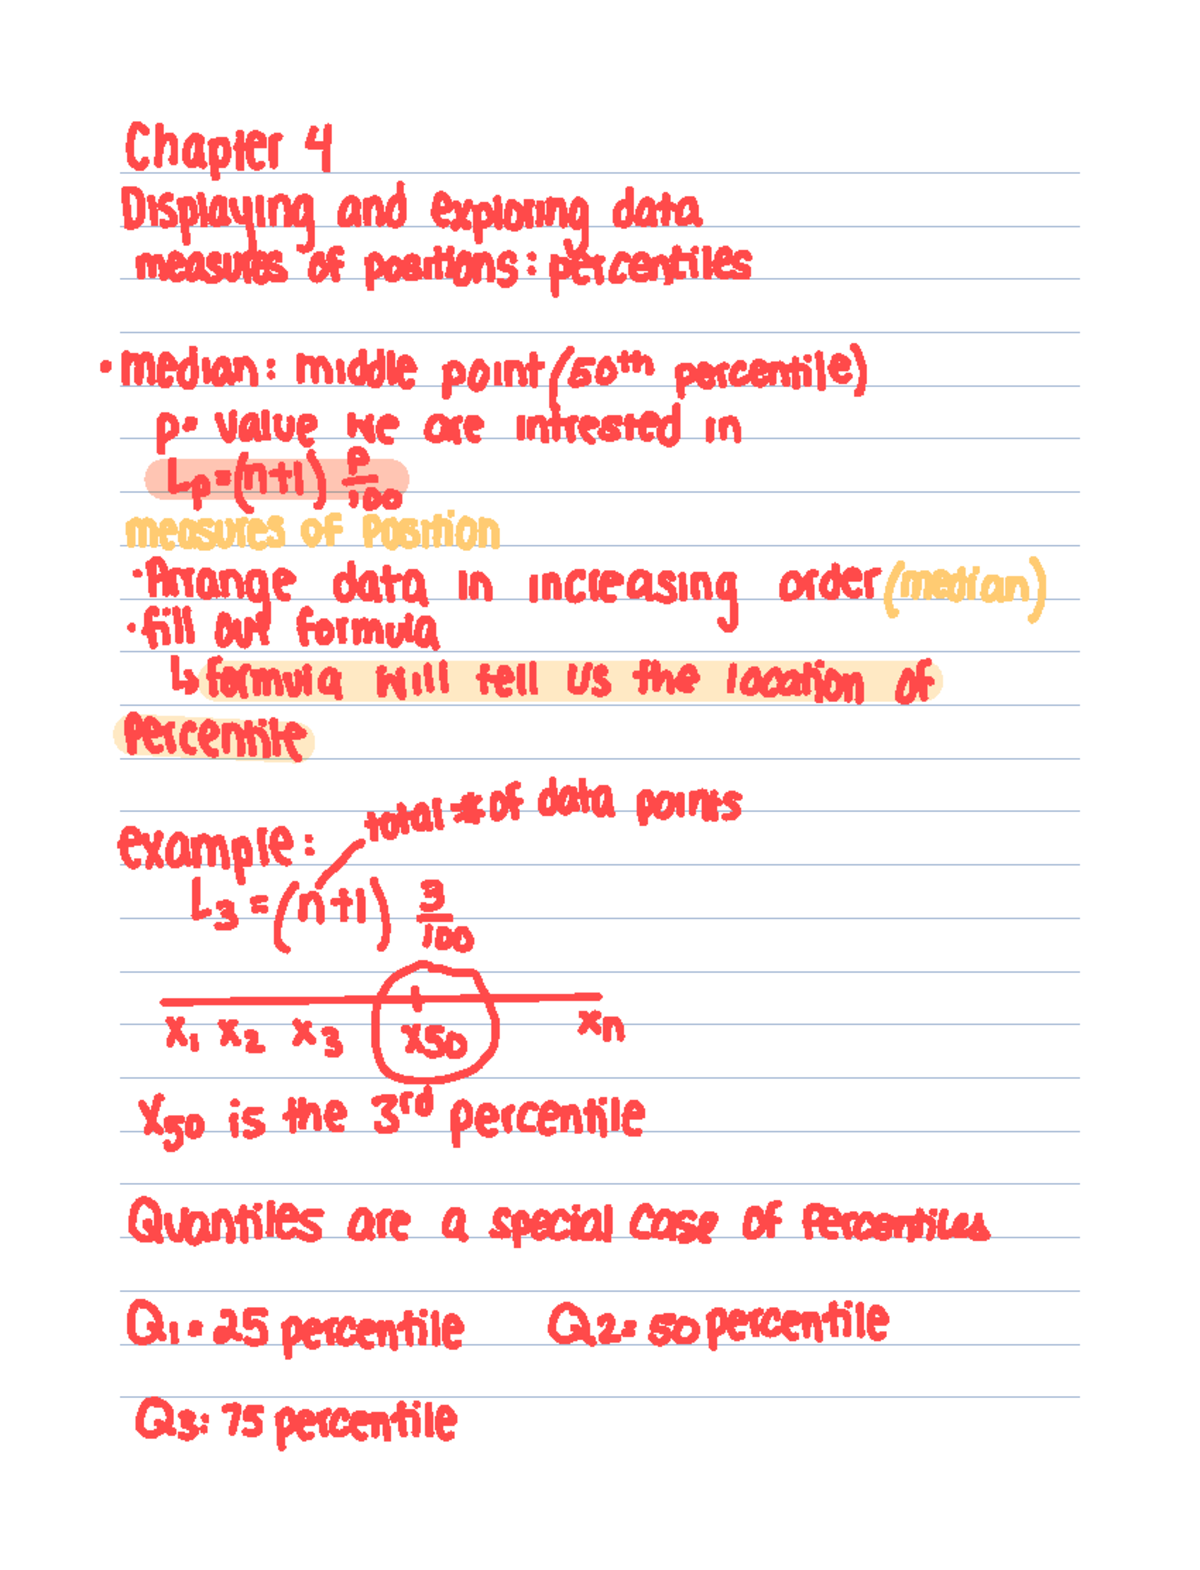 Chapter 4
Displaying and exploring data
measures of positions: percentiles
• median: middle point (50th percentile)
p= value we are intrested in
Lp=(n+1) P/100
measures of Position
• Arrange data in increasing order (median)
• fill out formula
↳ formula will tell us the location of
Percentile
total # of data points
example:
L3 = (n+1) 3/100
x1 x2 x3 x50 xn
X50 is the 3rd percentile
Quantiles are a special case of Percentiles
Q1= 25 percentile Q2= 50 percentile
Q3: 75 percentile